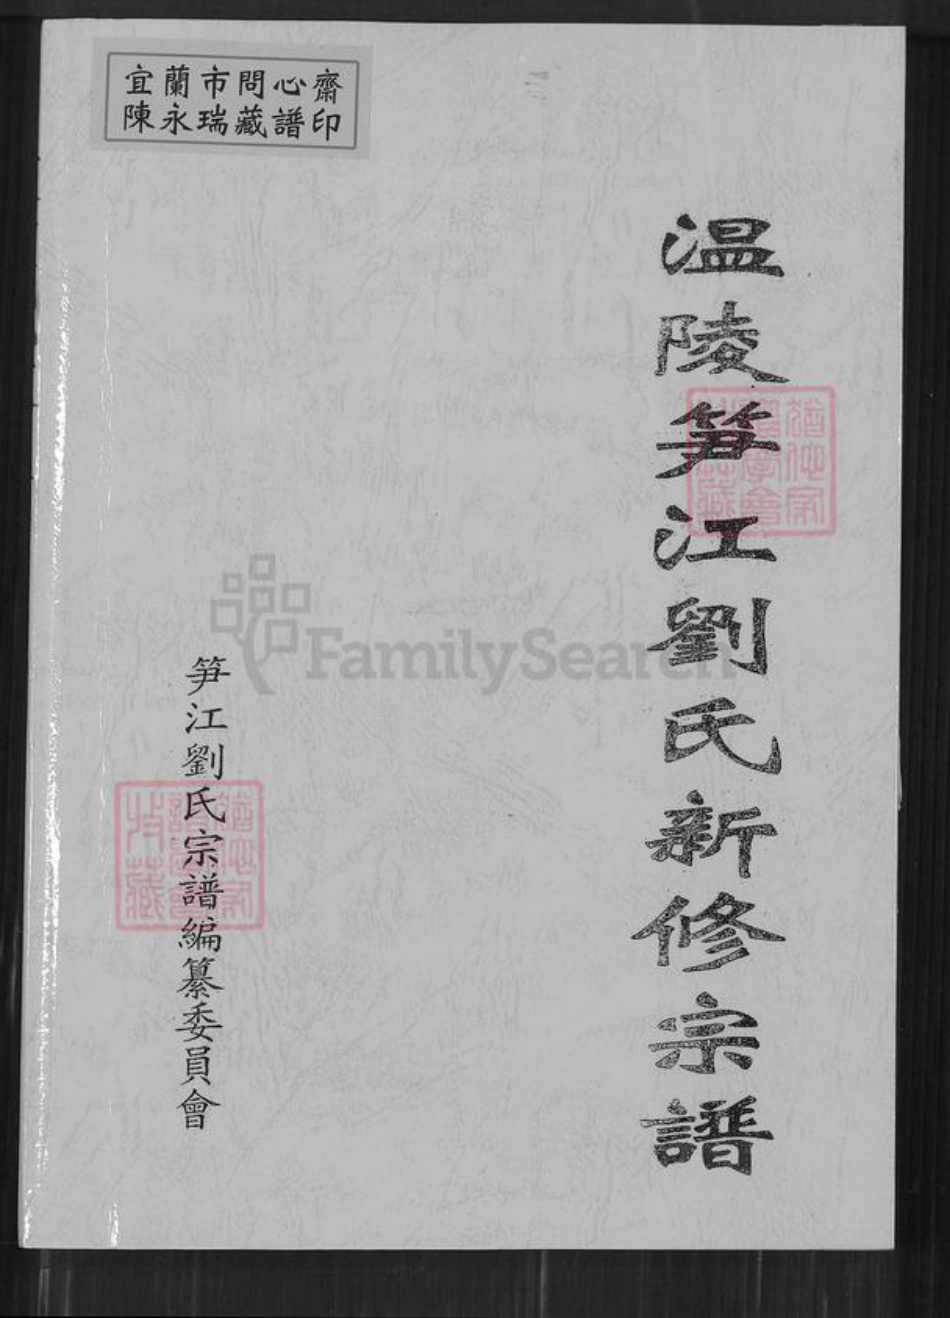 宜蘭市問心齋
陳永瑞藏譜印
温陵笋江劉氏新修宗譜
笋江劉氏宗譜編纂委員會
FamilySearch